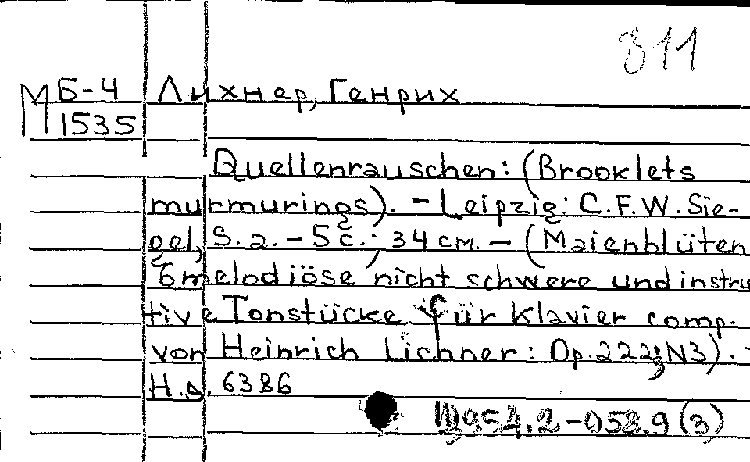 311
М Б-4 Лихнер, Генрих
1535
Quellenrauschen: (Brooklets
murmurings). - Leipzig: C.F.W. Sie-
gel, S. a. - 5 с.; 34 см. - (Maienblüten
6 melodiöse nicht schwere und instru
tive Tonstücke für Klavier comp.
von Heinrich Lichner: Op. 222; N3). -
Н.д. 6386
954.2-058.9(3)